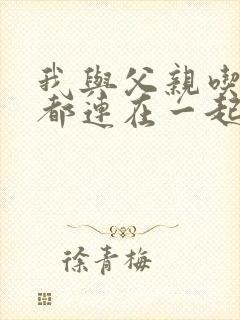 我與父親喫
都連在一起
徐青梅